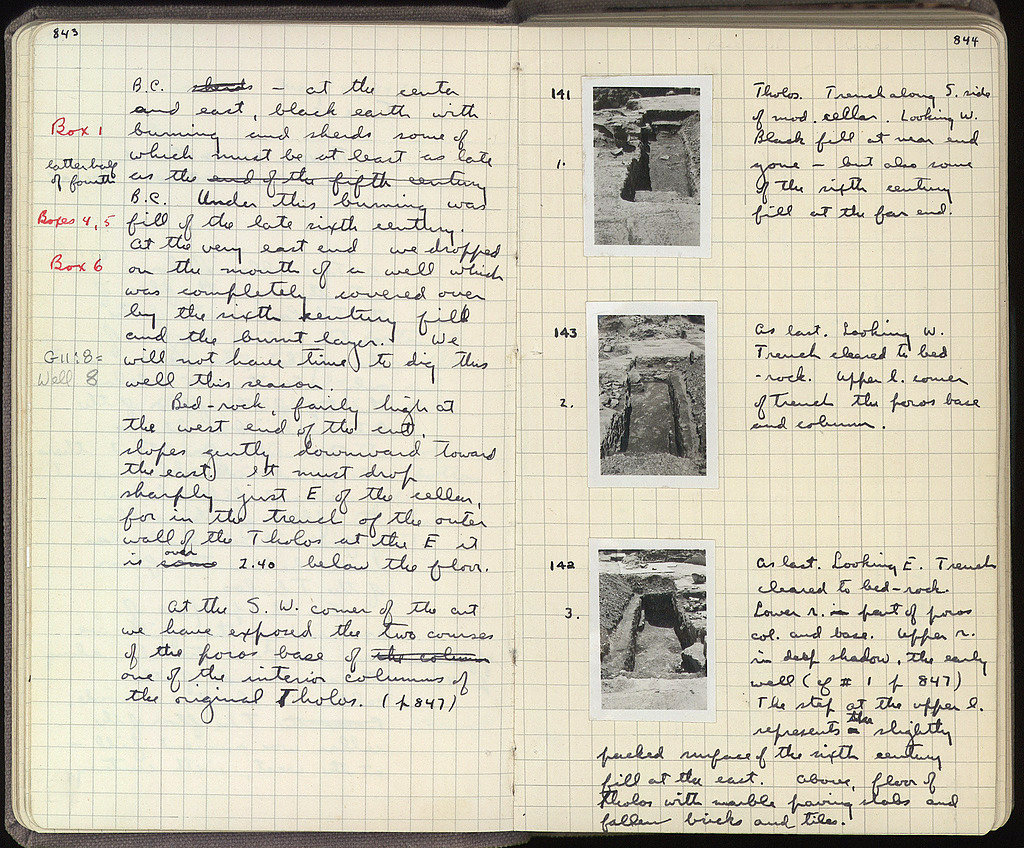 843
B.C. sherds – at the center
and east, black earth with
Box 1
burning and sherds some of
which must be at least as late
latter half
of fourth
as the end of the fifth century
B.C. Under this burning was
Boxes 4, 5
fill of the late sixth century.
At the very east end we dropped
Box 6
on the mouth of a well which
was completely covered over
by the sixth century fill
and the burnt layer. We
G11:8=
Well 8
will not have time to dig this
well this season.
Bed-rock, fairly high at
the west end of the cut,
slopes gently downward toward
the east. It must drop
sharply just E of the cellar,
for in the trench of the outer
wall of the Tholos at the E it
is some over 2.40 below the floor.
At the S. W. corner of the cut
we have exposed the two courses
of the poros base of the column
one of the interior columns of
the original Tholos. (p 847)
844
141
1.
Tholos. Trench along S. side
of mod. cellar. Looking W.
Black fill at near end
gone – but also some
of the sixth century
fill at the far end.
143
2.
As last. Looking W.
Trench cleared to bed
-rock. Upper l. corner
of trench the poros base
and column.
142
3.
As last. Looking E. Trench
cleared to bed-rock.
Lower r. is part of poros
col. and base. Upper r.
in deep shadow, the early
well (cf # 1 p 847)
The step at the upper l.
represents the slightly
packed surface of the sixth century
fill at the east. Above, floor of
Tholos with marble paving slabs and
fallen bricks and tiles.